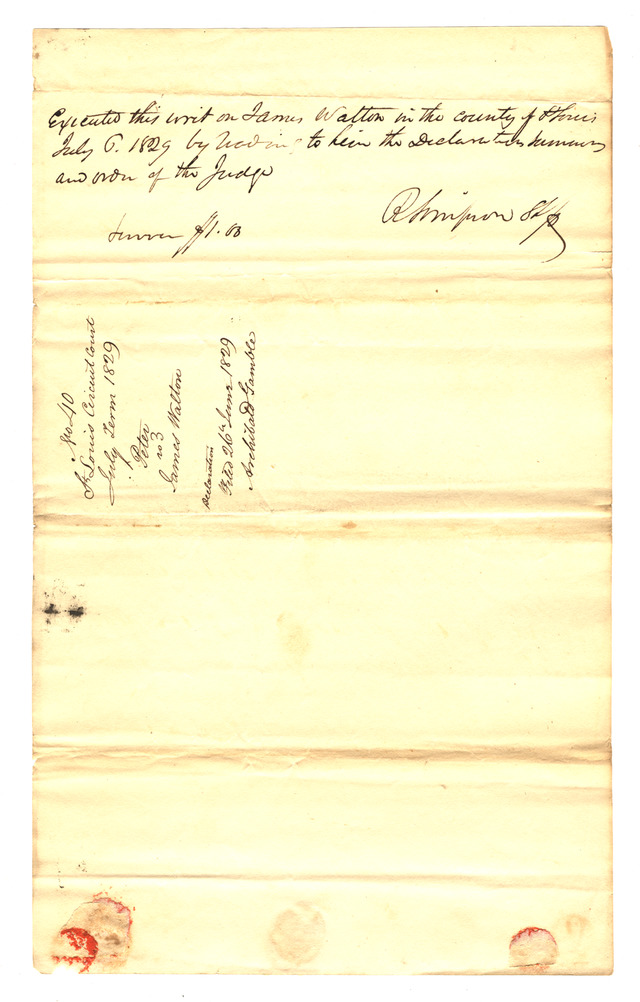 Executed this writ on James Walton in the county of St Louis
July 6. 1829 by reading to him the Declaration Summons
and order of the Judge
R Simpson Shff
$1.00
No 40
St Louis Circuit Court
July Term 1829
Peter
vs
James Walton
Declaration
Filed 26th June 1829
Archibald Gamble